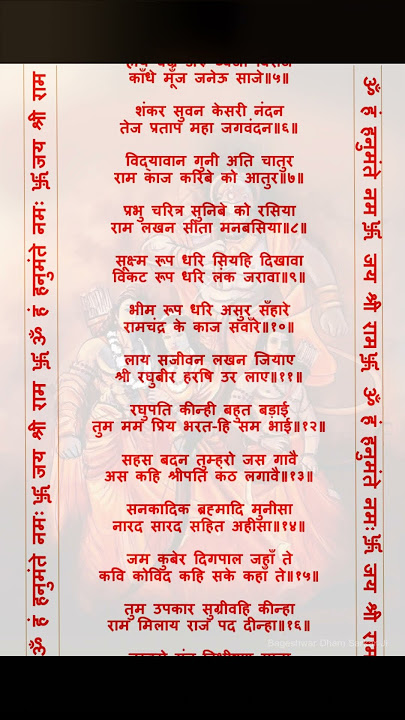 काँधे मूँज जनेऊ साजे॥५॥
शंकर सुवन केसरी नंदन
तेज प्रताप महा जगवंदन॥६॥
विद्यावान गुनी अति चातुर
राम काज करिबे को आतुर॥७॥
प्रभु चरित्र सुनिबे को रसिया
राम लखन सीता मनबसिया॥८॥
सूक्ष्म रूप धरि सियहि दिखावा
विकट रूप धरि लंक जरावा॥९॥
भीम रूप धरि असुर सँहारे
रामचंद्र के काज सवाँरे॥१०॥
लाय सजीवन लखन जियाए
श्री रघुबीर हरषि उर लाए॥११॥
रघुपति कीन्ही बहुत बड़ाई
तुम मम प्रिय भरत-हि सम भाई॥१२॥
सहस बदन तुम्हरो जस गावै
अस कहि श्रीपति कंठ लगावै॥१३॥
सनकादिक ब्रह्मादि मुनीसा
नारद सारद सहित अहीसा॥१४॥
जम कुबेर दिगपाल जहाँ ते
कवि कोविद कहि सके कहाँ ते॥१५॥
तुम उपकार सुग्रीवहि कीन्हा
राम मिलाय राज पद दीन्हा॥१६॥
ॐ हं हनुमंते नमः 卐 जय श्री राम 卐 ॐ हं हनुमंते नमः 卐 जय श्री राम
ॐ हं हनुमंते नमः 卐 जय श्री राम 卐 ॐ हं हनुमंते नमः 卐 जय श्री राम